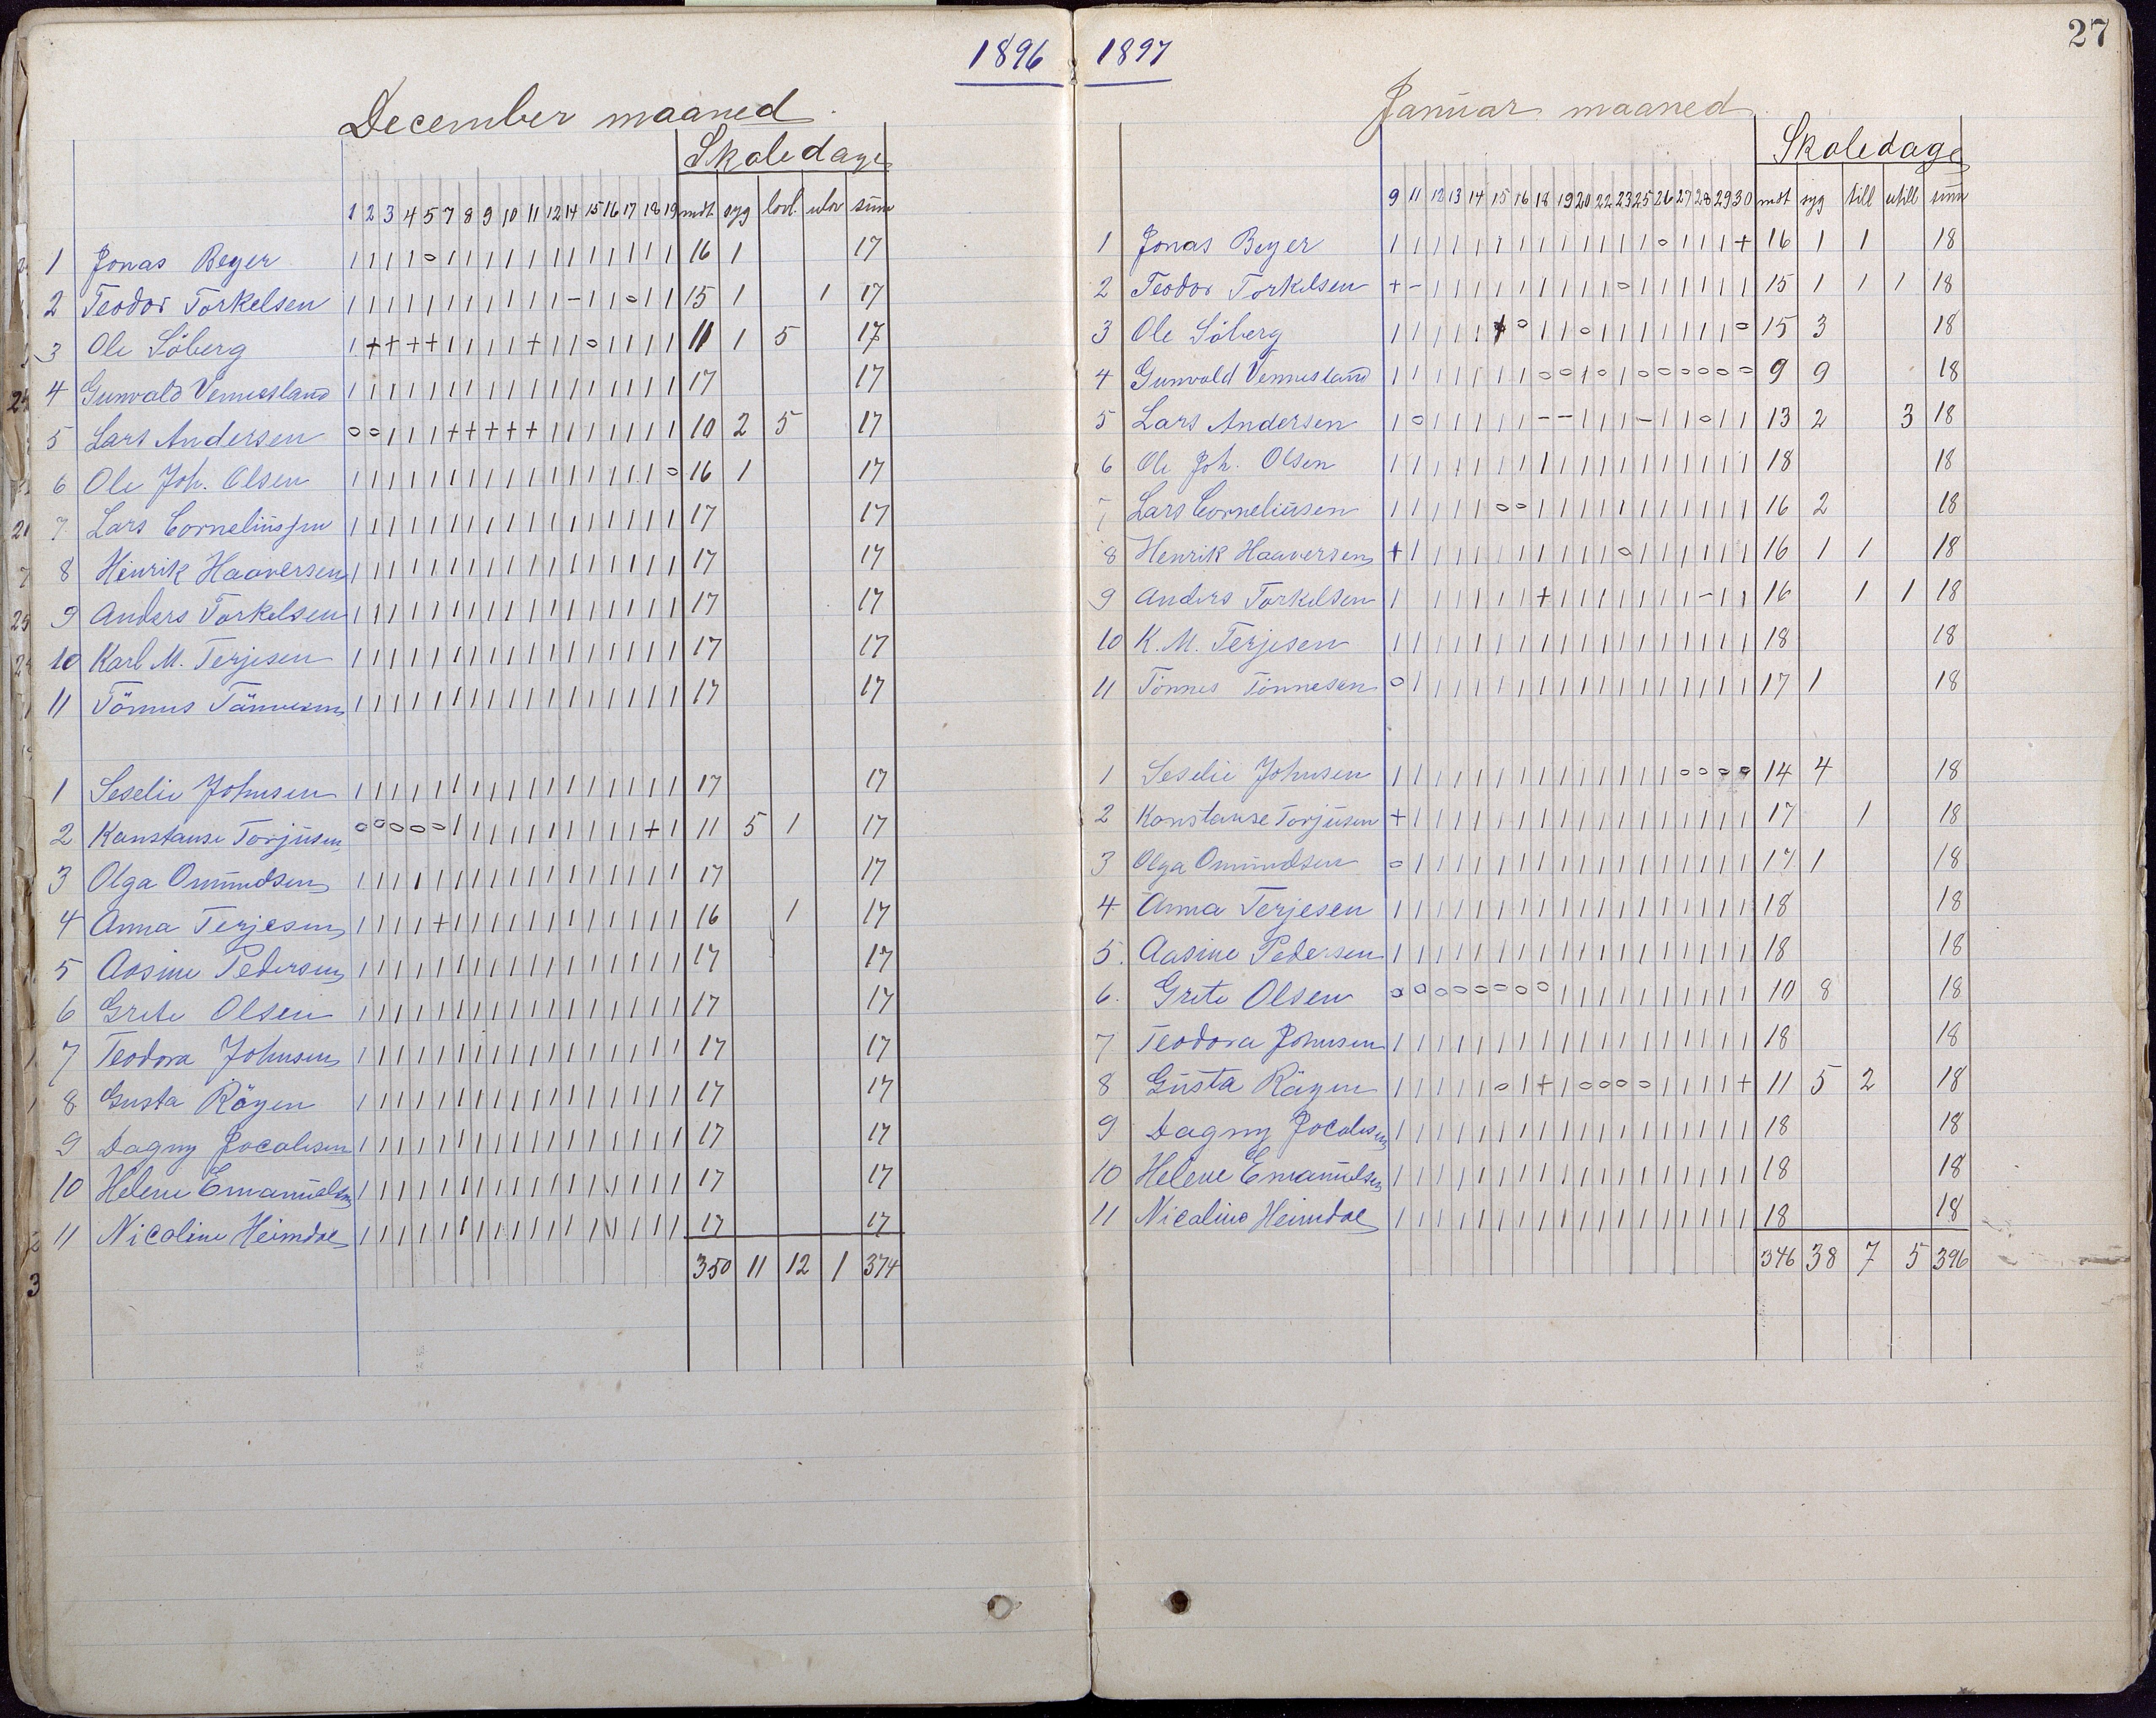 1896
December maaned.
Skoledage
1 2 3 4 5 7 8 9 10 11 12 14 15 16 17 18 19 mdt syg lovl. ulov sum
1 Jonas Beyer 1 1 1 1 o 1 1 1 1 1 1 1 1 1 1 1 1 16 1 17
2 Teodor Torkelsen 1 1 1 1 1 1 1 1 1 1 1 - 1 1 o 1 1 15 1 1 17
3 Ole Söberg 1 + + + + 1 1 1 1 + 1 1 o 1 1 1 1 11 1 5 17
4 Gunvald Vennesland 1 1 1 1 1 1 1 1 1 1 1 1 1 1 1 1 1 17 17
5 Lars Andersen o o 1 1 1 + + + + + 1 1 1 1 1 1 1 10 2 5 17
6 Ole Joh. Olsen 1 1 1 1 1 1 1 1 1 1 1 1 1 1 1 1 o 16 1 17
7 Lars Corneliussen 1 1 1 1 1 1 1 1 1 1 1 1 1 1 1 1 1 17 17
8 Henrik Haaversen 1 1 1 1 1 1 1 1 1 1 1 1 1 1 1 1 1 17 17
9 Anders Torkelsen 1 1 1 1 1 1 1 1 1 1 1 1 1 1 1 1 1 17 17
10 Karl M. Terjesen 1 1 1 1 1 1 1 1 1 1 1 1 1 1 1 1 1 17 17
11 Tönnes Tönnesen 1 1 1 1 1 1 1 1 1 1 1 1 1 1 1 1 1 17 17
1 Seselie Johnsen 1 1 1 1 1 1 1 1 1 1 1 1 1 1 1 1 1 17 17
2 Konstanse Torjusen o o o o o 1 1 1 1 1 1 1 1 1 1 + 1 11 5 1 17
3 Olga Omundsen 1 1 1 1 1 1 1 1 1 1 1 1 1 1 1 1 1 17 17
4 Anna Terjesen 1 1 1 1 + 1 1 1 1 1 1 1 1 1 1 1 1 16 1 17
5 Aasine Pedersen 1 1 1 1 1 1 1 1 1 1 1 1 1 1 1 1 1 17 17
6 Grete Olsen 1 1 1 1 1 1 1 1 1 1 1 1 1 1 1 1 1 17 17
7 Teodora Johnsen 1 1 1 1 1 1 1 1 1 1 1 1 1 1 1 1 1 17 17
8 Gusta Röyen 1 1 1 1 1 1 1 1 1 1 1 1 1 1 1 1 1 17 17
9 Dagny Jocalesen 1 1 1 1 1 1 1 1 1 1 1 1 1 1 1 1 1 17 17
10 Helene Emanuelsen 1 1 1 1 1 1 1 1 1 1 1 1 1 1 1 1 1 17 17
11 Nicoline Heimdal 1 1 1 1 1 1 1 1 1 1 1 1 1 1 1 1 1 17 17
350 11 12 1 374
1897
27
Januar maaned
Skoledage
9 11 12 13 14 15 16 18 19 20 22 23 25 26 27 28 29 30 mdt syg till utill sum
1 Jonas Beyer 1 1 1 1 1 1 1 1 1 1 1 1 1 o 1 1 1 + 16 1 1 18
2 Teodor Torkelsen + - 1 1 1 1 1 1 1 1 1 o 1 1 1 1 1 1 15 1 1 1 18
3 Ole Söberg 1 1 1 1 1 1 o 1 1 o 1 1 1 1 1 1 1 o 15 3 18
4 Gunvald Vennesland 1 1 1 1 1 1 1 o o 1 o 1 o o o o o o 9 9 18
5 Lars Andersen 1 o 1 1 1 1 1 - - 1 1 1 - 1 1 o 1 1 13 2 3 18
6 Ole Joh. Olsen 1 1 1 1 1 1 1 1 1 1 1 1 1 1 1 1 1 1 18 18
7 Lars Corneliusen 1 1 1 1 1 o o 1 1 1 1 1 1 1 1 1 1 1 16 2 18
8 Henrik Haaversen + 1 1 1 1 1 1 1 1 1 1 o 1 1 1 1 1 1 16 1 1 18
9 Anders Torkelsen 1 1 1 1 1 1 + 1 1 1 1 1 1 1 1 - 1 1 16 1 1 18
10 K. M. Terjesen 1 1 1 1 1 1 1 1 1 1 1 1 1 1 1 1 1 1 18 18
11 Tönnes Tönnesen o 1 1 1 1 1 1 1 1 1 1 1 1 1 1 1 1 1 17 1 18
1 Seselie Johnsen 1 1 1 1 1 1 1 1 1 1 1 1 1 1 o o o o 14 4 18
2 Konstanse Torjusen + 1 1 1 1 1 1 1 1 1 1 1 1 1 1 1 1 1 17 1 18
3 Olga Omundsen o 1 1 1 1 1 1 1 1 1 1 1 1 1 1 1 1 1 17 1 18
4. Anna Terjesen 1 1 1 1 1 1 1 1 1 1 1 1 1 1 1 1 1 1 18 18
5. Aasine Pedersen 1 1 1 1 1 1 1 1 1 1 1 1 1 1 1 1 1 1 18 18
6. Grete Olsen o o o o o o o o 1 1 1 1 1 1 1 1 1 1 10 8 18
7 Teodora Johnsen 1 1 1 1 1 1 1 1 1 1 1 1 1 1 1 1 1 1 18 18
8 Gusta Röyen 1 1 1 1 1 o 1 + 1 o o o o 1 1 1 1 + 11 5 2 18
9 Dagny Jocalesen 1 1 1 1 1 1 1 1 1 1 1 1 1 1 1 1 1 1 18 18
10 Helene Emanuelsen 1 1 1 1 1 1 1 1 1 1 1 1 1 1 1 1 1 1 18 18
11 Nicoline Heimdal 1 1 1 1 1 1 1 1 1 1 1 1 1 1 1 1 1 1 18 18
346 38 7 5 396